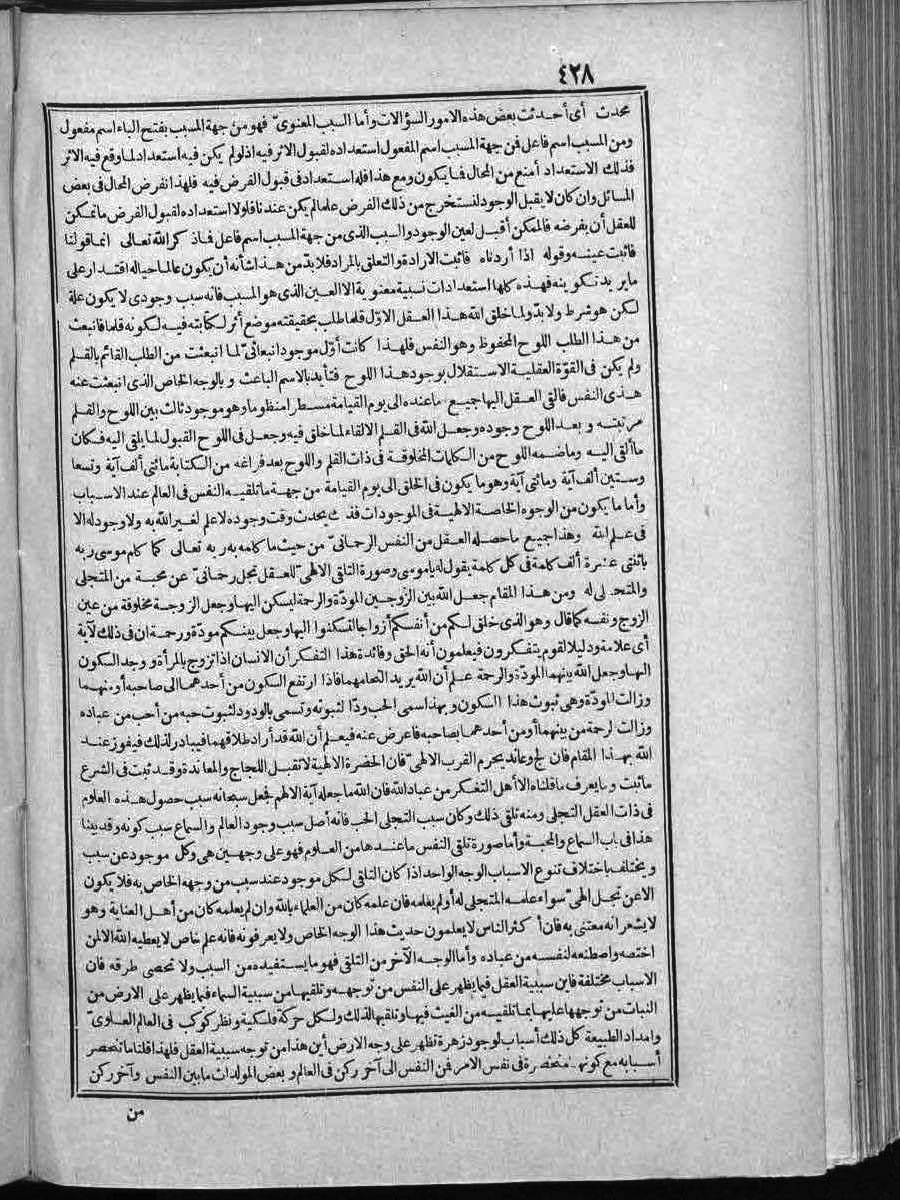 ٤٢٨
محدث أى أحدثت بعض هذه الامور السؤالات وأما السبب المعنوى فهو من جهة المسبب بفتح الباء اسم مفعول
ومن المسبب اسم فاعل فمن جهة المسبب اسم المفعول استعداده لقبول الاثر فيه اذ لو لم يكن فيه استعداد لما وقع فيه الاثر
فذلك الاستعداد أمنع من المحال فما يكون ومع هذا فله استعداد فى قبول الفرض فيه فلهذا نفرض المحال فى بعض
المسائل وان كان لا يقبل الوجود لنستخرج من ذلك الفرض علما لم يكن عندنا فلولا استعداده لقبول الفرض ما تمكن
للعقل أن يفرضه فالممكن أقبل لعين الوجود والسبب الذى من جهة المسبب اسم فاعل فما ذكر الله تعالى انما قولنا
فاثبت عينه وقوله اذا أردناه فاثبت الارادة والتعلق بالمراد فلابد من هذا شأنه أن يكون عالما حيا له اقتدار على
ما يريد تكوينه فهذه كلها استعدادات نسبية معنوية الا العين الذى هو المسبب فانه سبب وجودى لا يكون علة
لكن هو شرط ولابد ولما خلق الله هذا العقل الاوّل قلما طلب بحقيقته موضع أثر لكتابته فيه لكونه قلما فانبعث
من هذا الطلب اللوح المحفوظ وهو النفس فلهذا كانت أوّل موجود انبعاثىّ لما انبعثت من الطلب القائم بالقلم
ولم يكن فى القوّة العقلية الاستقلال بوجود هذا اللوح فتأيد بالاسم الباعث وبالوجه الخاص الذى انبعثت عنه
هذى النفس فالقى العقل اليها جميع ما عنده الى يوم القيامة مسطرا منظوما وهو موجود ثالث بين اللوح والقلم
مرتبته وبعد اللوح وجوده وجعل الله فى القلم الالقاء لما خلق فيه وجعل فى اللوح القبول لما يلقى اليه فكان
ما ألقى اليه وما ضمه اللوح من الكلمات المخلوقة فى ذات القلم واللوح بعد فراغه من الكتابة مائتى ألف آية وتسعا
وستين ألف آية ومائتى آية وهو ما يكون فى الخلق الى يوم القيامة من جهة ما تلقيه النفس فى العالم عند الاسباب
وأما ما يكون من الوجوه الخاصة الالهية فى الموجودات فذلك يحدث وقت وجوده لا علم لغير الله به ولا وجود له الا
فى علم الله وهذا جميع ما حصله العقل من النفس الرحمانىّ من حيث ما كلمه به ربه تعالى كما كلم موسى ربه
باثنتى عشرة ألف كلمة فى كل كلمة يقول له يا موسى وصورة التلقى الالهىّ للعقل تجل رحمانىّ عن محبة من المتجلى
والمتجلى له ومن هذا المقام جعل الله بين الزوجين المودّة والرحمة ليسكن اليها وجعل الزوجة مخلوقة من عين
الزوج ونفسه كما قال وهو الذى خلق لكم من أنفسكم أزواجا لتسكنوا اليها وجعل بينكم مودّة ورحمة ان فى ذلك لآية
أى علامة ودليلا لقوم يتفكرون فيعلمون أنه الحق وفائدة هذا التفكر أن الانسان اذا تزوج بالمرأة ووجد السكون
اليها وجعل الله بينهما المودّة والرحمة علم أن الله يريد التحامهما فاذا ارتفع السكون من أحدهما الى صاحبه أو منهما
وزالت المودّة وهى ثبوت هذا السكون وبهذا سمى الحب ودّا لثبوته وتسمى بالودود لثبوت حبه من أحب من عباده
وزالت الرحمة من بينهما أو من أحدهما بصاحبه فاعرض عنه فيعلم أن الله قد أراد طلاقهما فيبادر لذلك فيفوز عند
الله بهذا المقام فان لج وعاند يحرم القرب الالهىّ فان الحضرة الالهية لا تقبل اللجاج والمعاندة وقد ثبت فى الشرع
ما ثبت وما يعرف ما قلناه الا أهل التفكر من عباد الله فان الله ما جعله آية الا لهم فجعل سبحانه سبب حصول هذه العلوم
فى ذات العقل التجلى ومنه تلقى ذلك وكان سبب التجلى الحب فانه أصل سبب وجود العالم والسماع سبب كونه وقد بينا
هذا فى باب السماع والمحبة وأما صورة تلقى النفس ما عندها من العلوم فهو على وجهين هى وكل موجود عن سبب
ويختلف باختلاف تنوع الاسباب الوجه الواحد اذا كان التلقى لكل موجود عند سبب من وجهه الخاص به فلا يكون
الا عن تجل الهىّ سواء علمه المتجلى له أو لم يعلمه فان علمه كان من العلماء بالله وان لم يعلمه كان من أهل العناية وهو
لا يشعر انه معتنى به فان أكثر الناس لا يعلمون حديث هذا الوجه الخاص ولا يعرفونه فانه علم خاص لا يعطيه الله الا لمن
اختصه واصطنعه لنفسه من عباده وأما الوجه الآخر من التلقى فهو ما يستفيده من السبب ولا تحصى طرقه فان
الاسباب مختلفة فاين سببية العقل فيما يظهر على النفس من توجهه وتلقيها من سببية السماء فيما يظهر على الارض من
النبات من توجهها عليها بما تلقيه من الغيث فيها وتلقيها لذلك ولكل حركة فلكية ونظر كوكب فى العالم العلوىّ
وامداد الطبيعة كل ذلك أسباب لوجود زهرة تظهر على وجه الارض أين هذا من توجه سببية العقل فلهذا قلنا ما تنحصر
أسبابه مع كونها منحصرة فى نفس الامر فمن النفس الى آخر ركن فى العالم وبعض المولدات ما بين النفس وآخر ركن
من